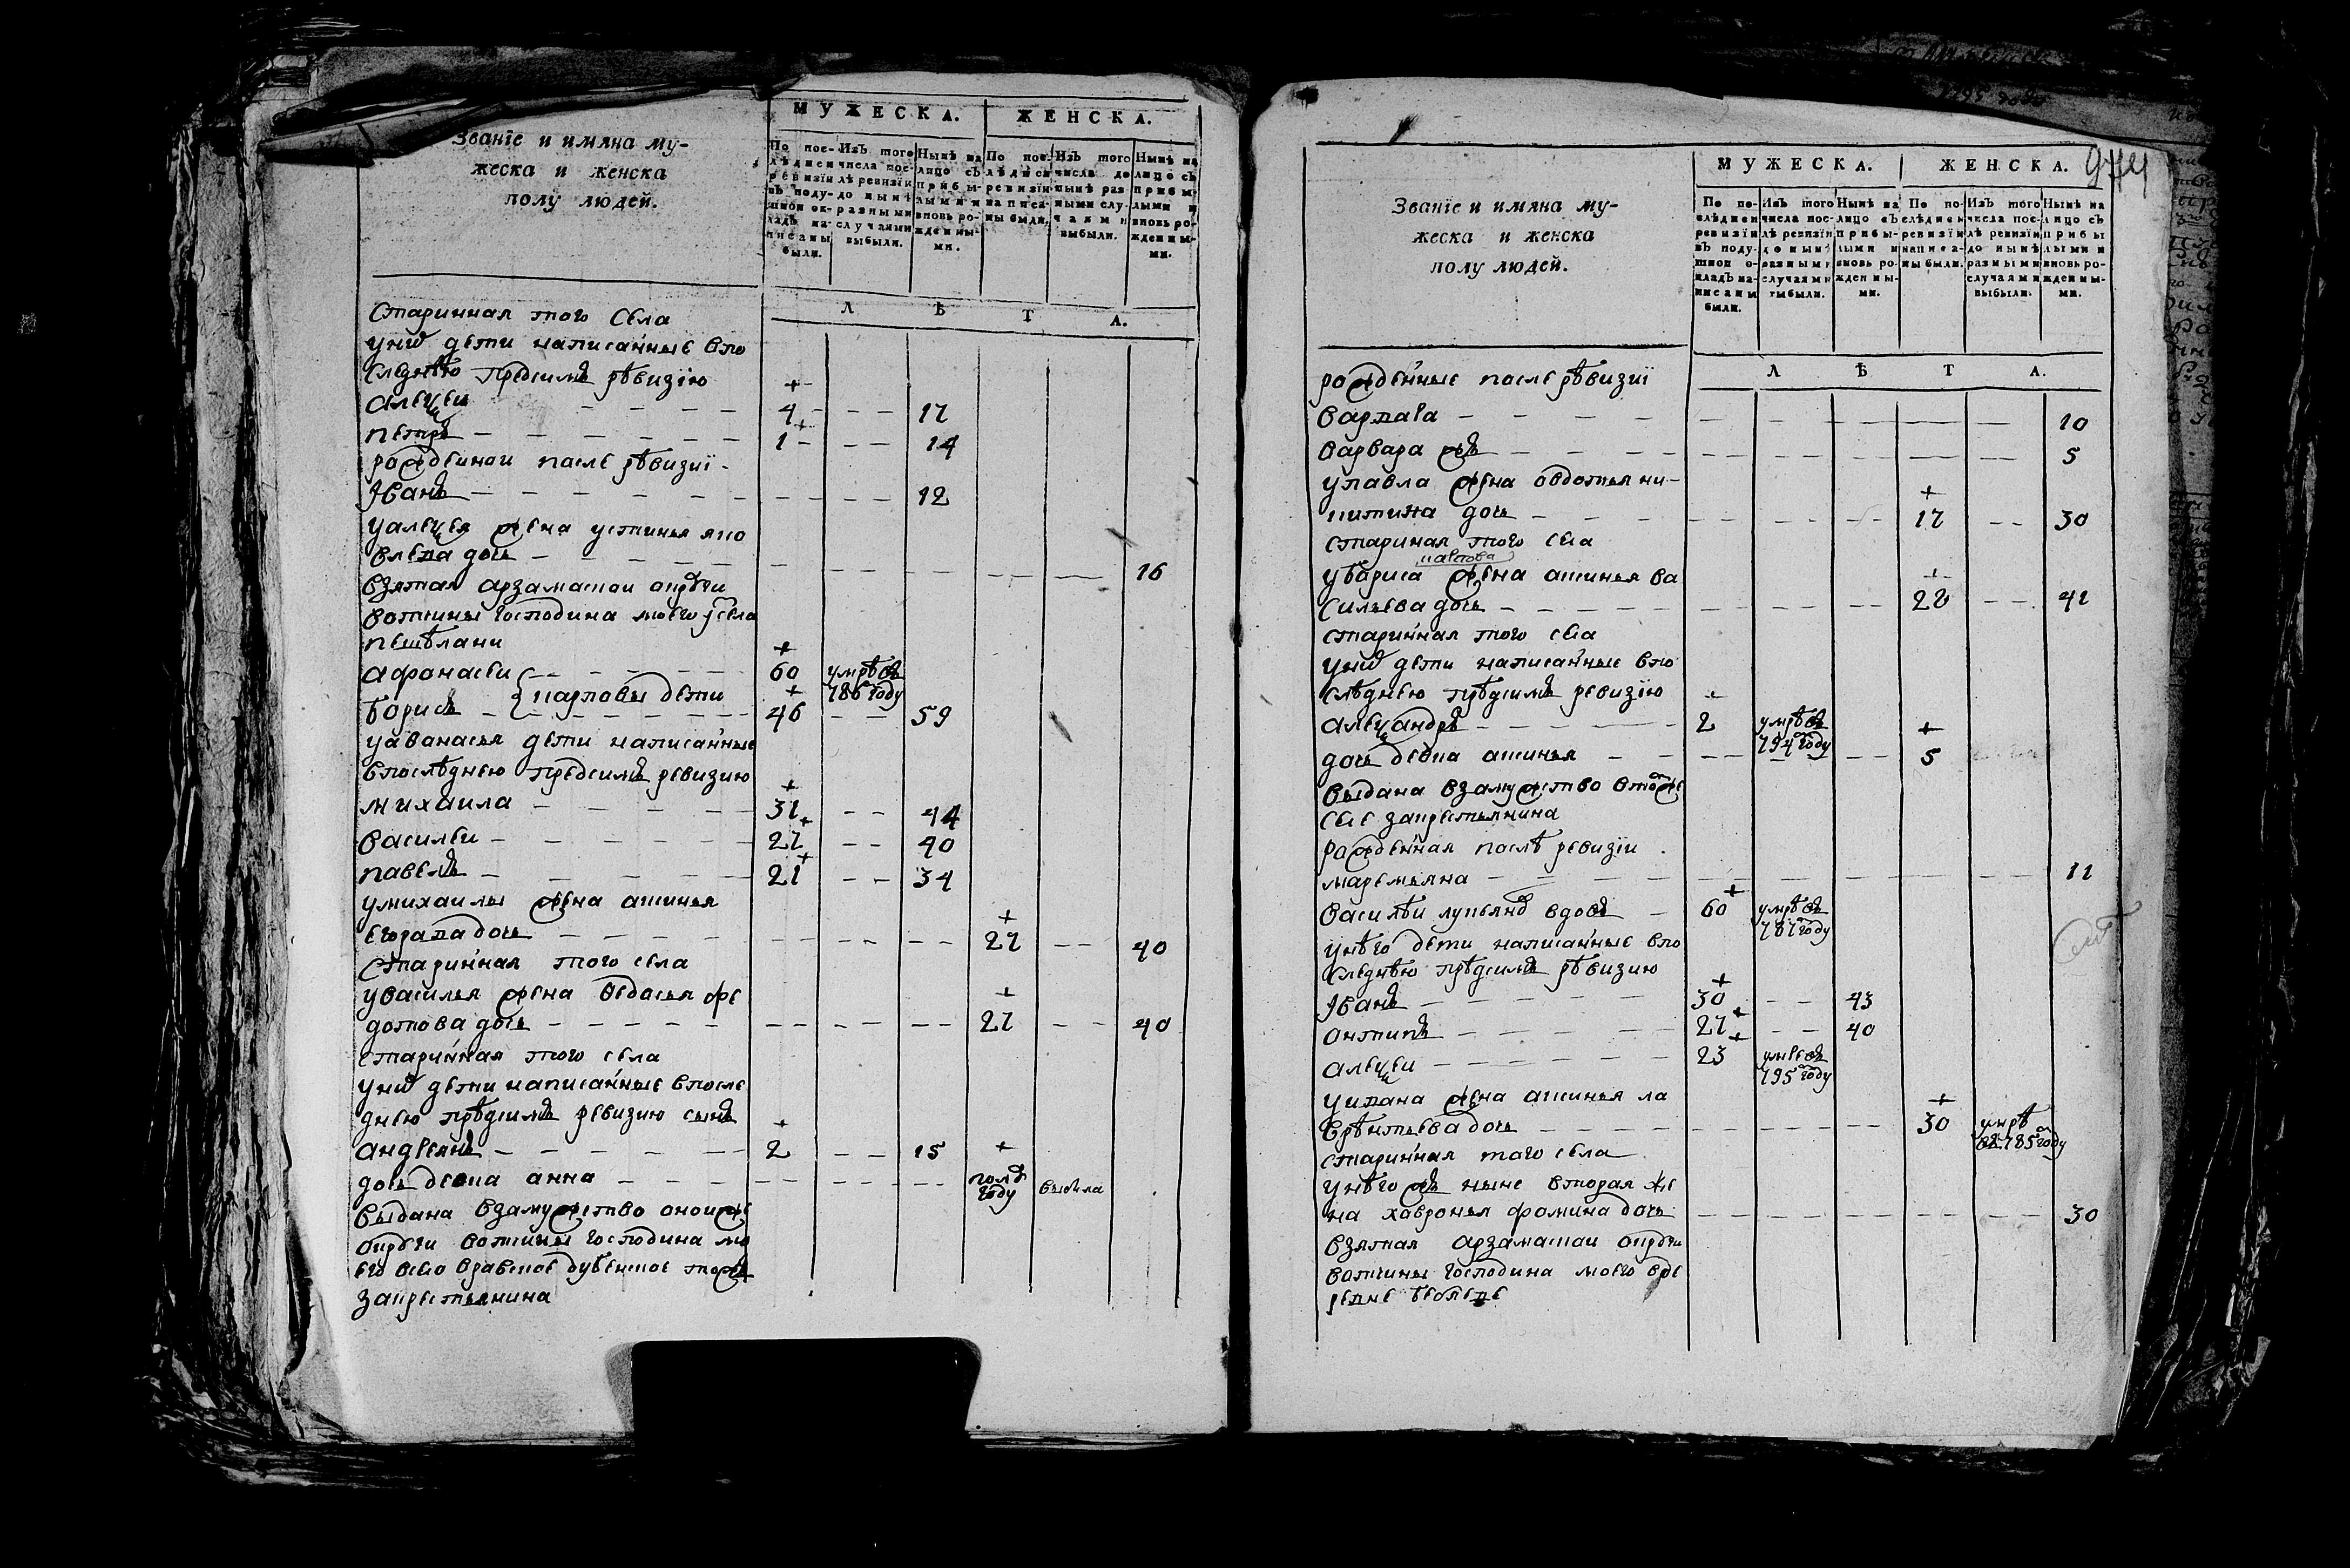 Званїе и имяна му-
жеска и женска
полу людей.
МУЖЕСКА.
ЖЕНСКА.
По пос-
лѣдней
ревизїи
въ поду-
шной ок-
ладъ на-
писаны
были.
Изъ того
числа пос-
лѣ ревизїи
до нынѣ
разными
случаями
выбыли.
Нынѣ на
лицо съ
прибы-
лыми и
вновь ро-
жденны-
ми.
По пос-
лѣдней
ревизїи
написа-
ны были.
Изъ того
числа до
нынѣ раз-
ными слу-
чаями
выбыли.
Нынѣ на
лицо съ
прибы-
лыми и
вновь ро-
жденны-
ми.
Л Ѣ Т А.
старинная того села
унихъ дети написанные впо
следнѣю предсимъ рѣвизїю
алексеи 4 17
петръ 1 14
рожденнои после рѣвизиї
Iванъ 12
уалексея жена устинья яко
влева дочь 16
взятая арзамаскои округи
вотчины господина моего села
пешѣлани
афонасеи 60 умрѣ въ 786 году
борисъ карповы дети 46 59
уафанасья дети написанные
впослѣднею предсимъ ревизию
михаила 31 44
василеи 27 40
павелъ 21 34
умихаилы жена аксинья
егорава дочь 27 40
старинная того села
увасилья жена федосья фе
дотова дочь 27 40
старинная того села
унихъ дети написанные впосле
днею прѣдсимъ ревизию сынъ
андреянъ 2 15
дочь девка анна полъ году выбыла
выдана взамужство оноиже
округи вотчины господина мо
его всело
закрестьянина
974
Званїе и имяна му-
жеска и женска
полу людей.
МУЖЕСКА.
ЖЕНСКА.
По по-
слѣдней
ревизїи
въ поду-
шной о-
кладъ на-
писаны
были.
Изъ того
числа пос-
лѣ ревизїи
до нынѣ
разными
случаями
выбыли.
Нынѣ на
лицо съ
прибы-
лыми и
вновь ро-
жденны-
ми.
По по-
слѣдней
ревизїи
написа-
ны были.
Изъ того
числа пос-
лѣ ревизїи
до нынѣ
разными
случаями
выбыли.
Нынѣ на
лицо съ
прибы
лыми и
вновь ро-
жденны-
ми.
Л Ѣ Т А.
рожденные после рѣвизиї
варвара 10
варвара жъ 5
упавла жена овдотья ни-
китина дочь 17 30
старинная того села
карпова
убориса жена аксинья ва
сильева дочь 28 41
старинная того села
унихъ дети написанные впо
слѣднею прѣдсимъ ревизїю
александръ 2 умрѣ въ 794 году
дочь девка аксинья 5
выдана взамужство втомже
селе закрестьянина
рожденная послѣ ревизїи
маремьяна 11
василѣи лукьянъ вдовъ 60 умрѣ въ 787 году
унѣго дети написанные впо
следнѣю прѣдсимъ рѣвизию
Iванъ 30 43
онтипъ 27 40
алексеи 23 умре въ 795 году
уивана жена аксинья ла
врѣнтьева дочь 30 умрѣ въ 785 году
старинная того села
унѣго жъ ныне вторая же
на хавронья фомина дочь 30
взятая арзамаскои округи
вотчины господина моего вде
ревне